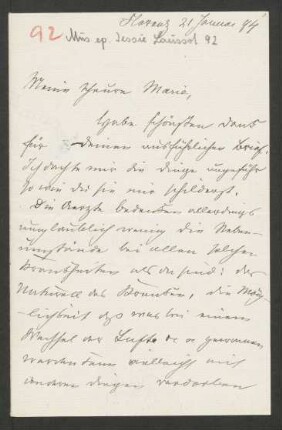 Florenz 21 Januar 94
92 Mus. ep. Jessie Laussot 92
Meine theure Marie,
Habe schönsten Dank
für Deinen ausführlichen Brief.
Ich dachte mir die Dinge ungefähr
so wie du sie mir schilderst.
Die Aerzte bedenken allerdings
unglaublich wenig die Neben-
umstände bei allen solchen
Krankheiten als da sind: der
des Kranken, die Mög-
lichkeit daß was bei einem
Wechsel der Lüfte gewonnen
werden kann vielleicht mit
anderen Dingen verdorben